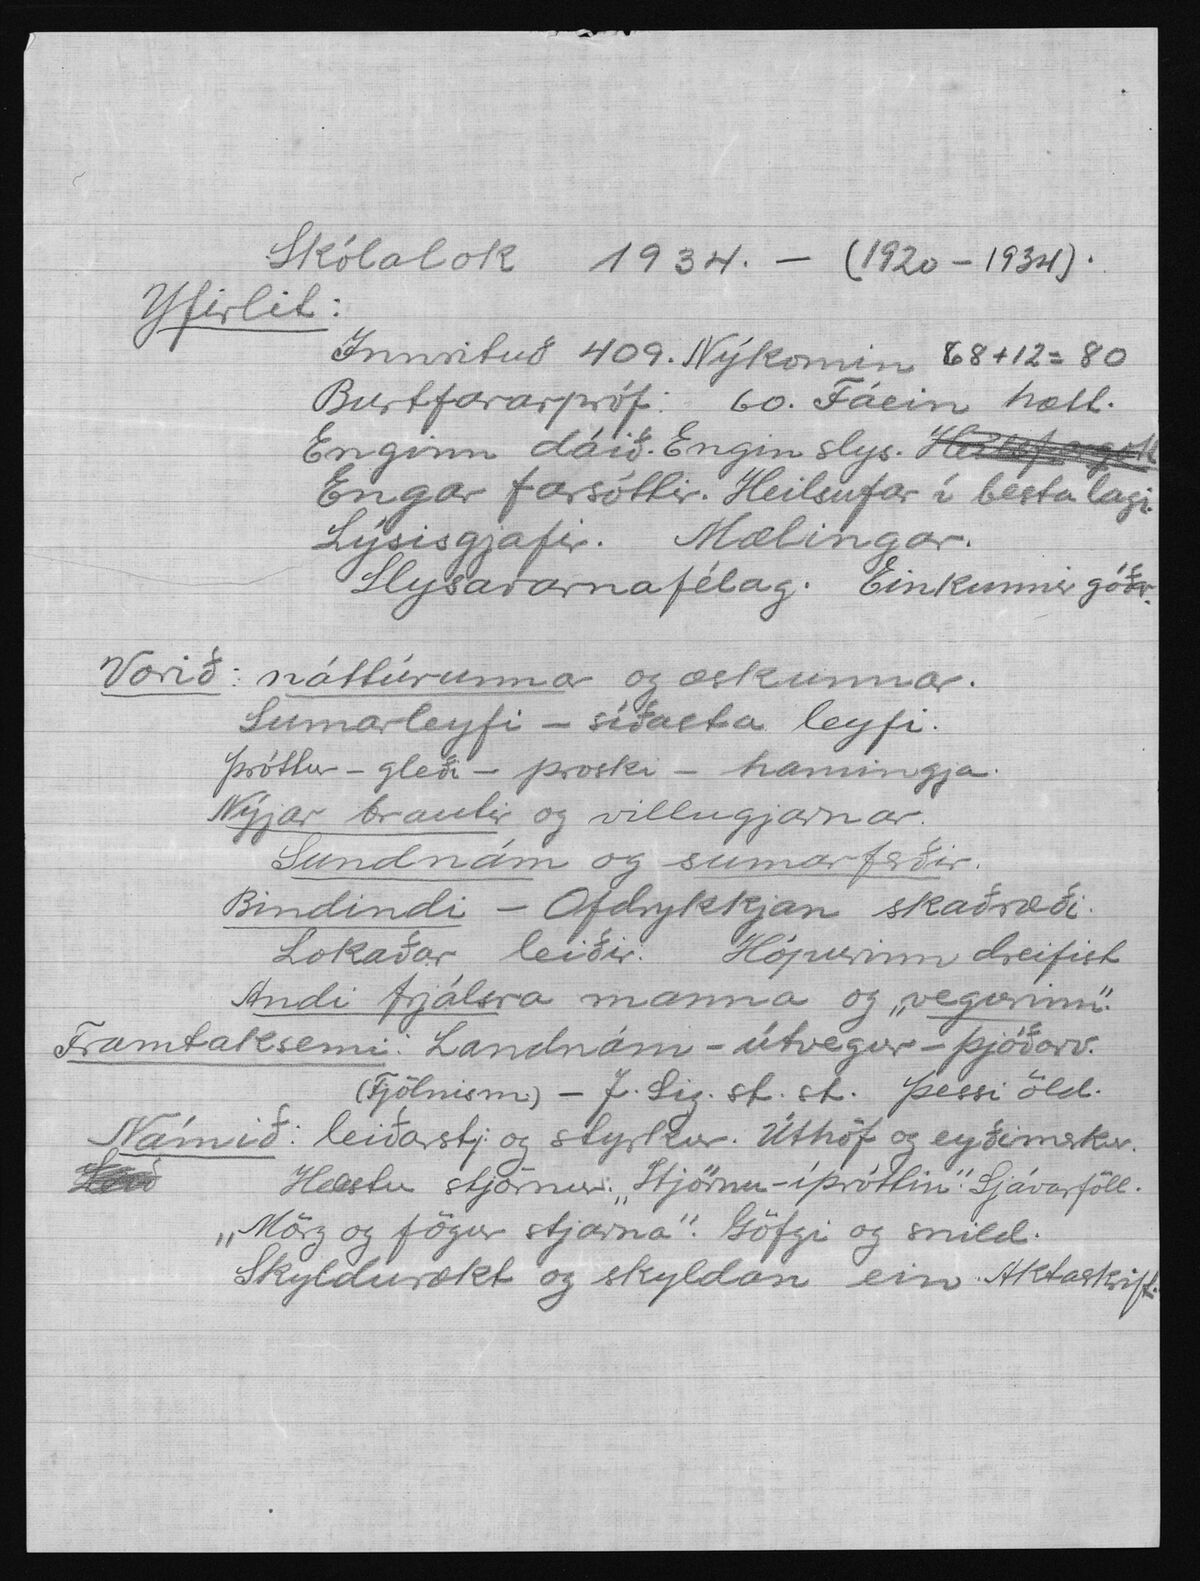 Skólalok 1934. – (1920 – 1934).
Yfirlit:
Innrituð 409. Nýkomin 68+12 = 80
Burtfararpróf: 60. Fáein hætt.
Enginn dáið. Engin slys.
Engar farsóttir. Heilsufar í besta lagi.
Lýsisgjafir. Mælingar.
Slysavarnafélag. Einkunnir góðar.
Vorið: náttúrunnar og æskunnar.
Sumarleyfi – síðasta leyfi.
Þróttur – gleði – þroski – hamingja.
Nýjar brautir og villugjarnar.
Sundnám og sumarferðir.
Bindindi – Ofdrykkjan skaðræði.
Lokaðar leiðir. Hópurinn dreifist
Andi frjálsra manna og „vegurinn“.
Framtaksemi: Landnám – útvegur – þjóðarv.
(Fjölnism.) – J. Sig. st. st. Þessi öld.
Námið: leiðarstj. og styrkur. Úthöf og eyðimerkur.
Hæstu stjörnur. „Stjörnu-íþróttin“. Sjávarföll.
„Mörg og fögur stjarna“. Göfgi og snild.
Skyldurækt og skyldan ein. Aktaskrift.